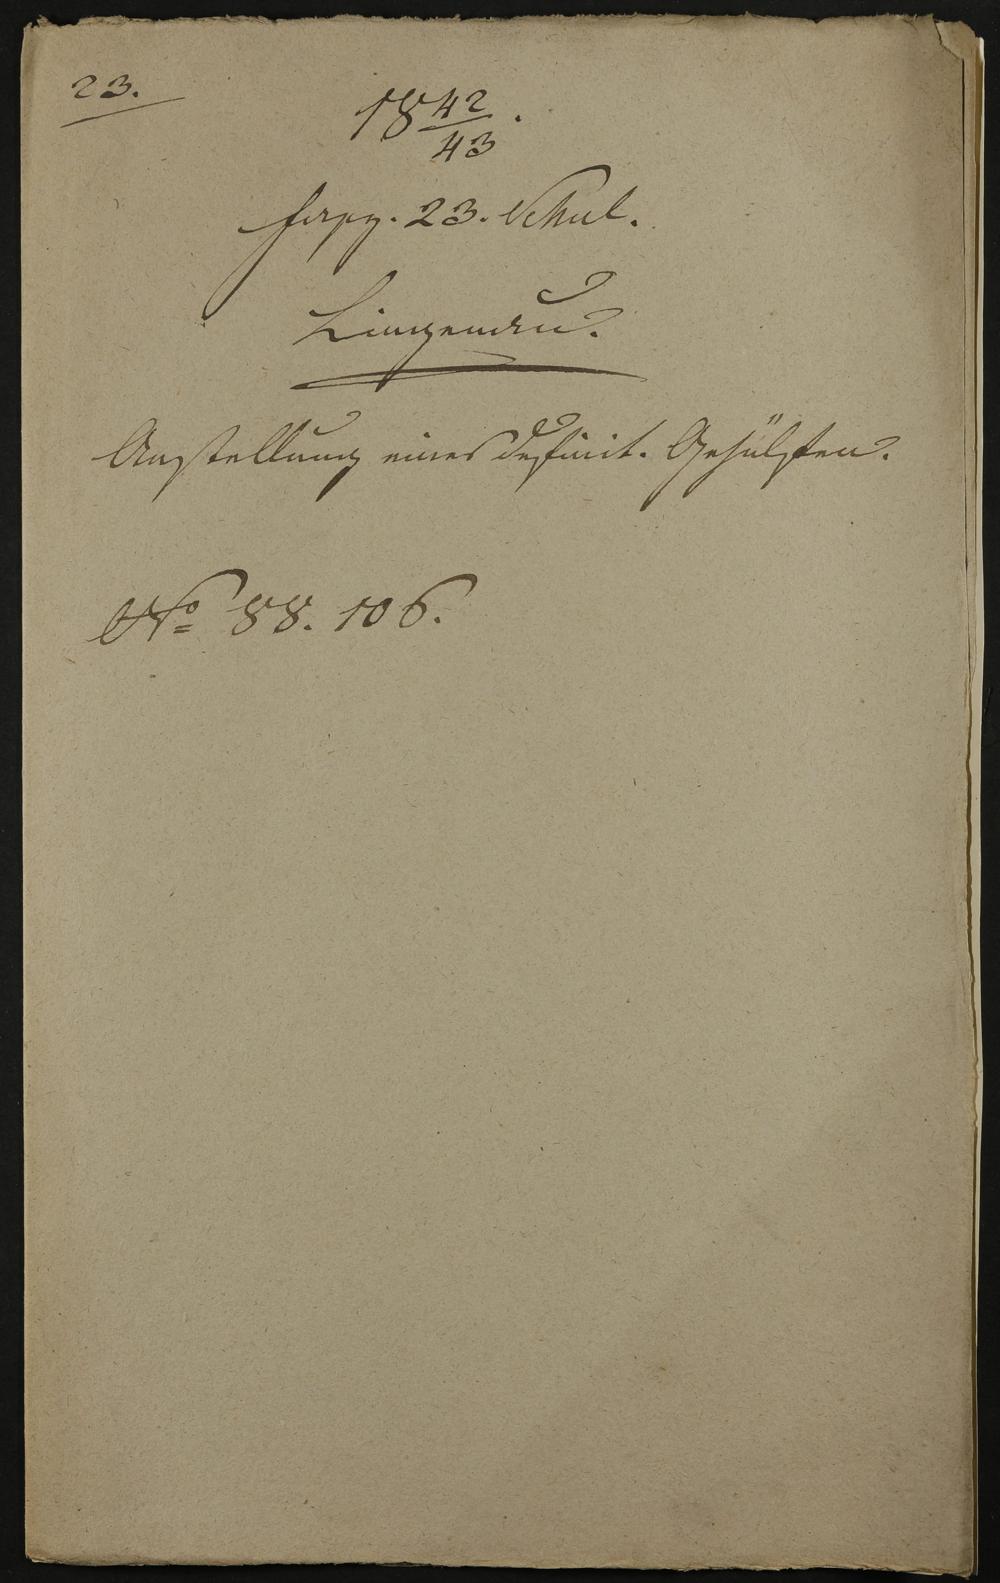 23.
18 42/43.
Fasz. 23. Schul.
Lingenau.
Anstellung eines definit. Gehülfen.
No 88. 106.